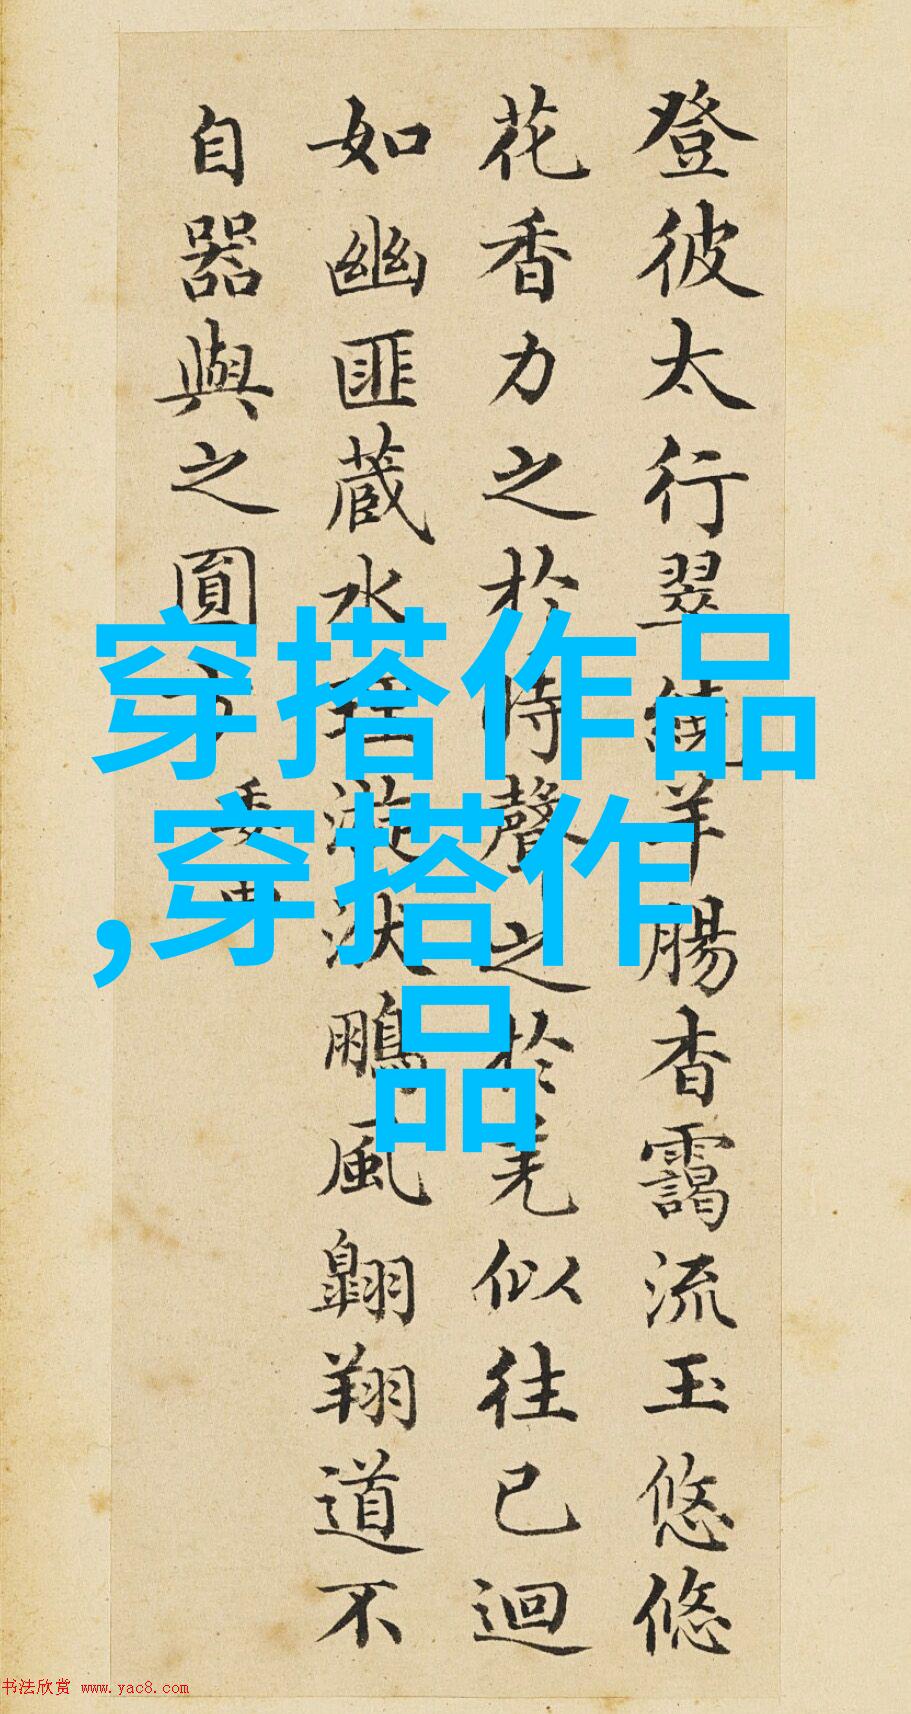 登彼太行翠繞羊腸杳靄流玉悠悠
花香力之於時聲之於羌似往已迴
如幽匪蔵水理漩洑鵬風翶翔道不
自器與之圓方 委曲
穿搭作品
,穿搭作
品
书法欣赏 www.yac8.com